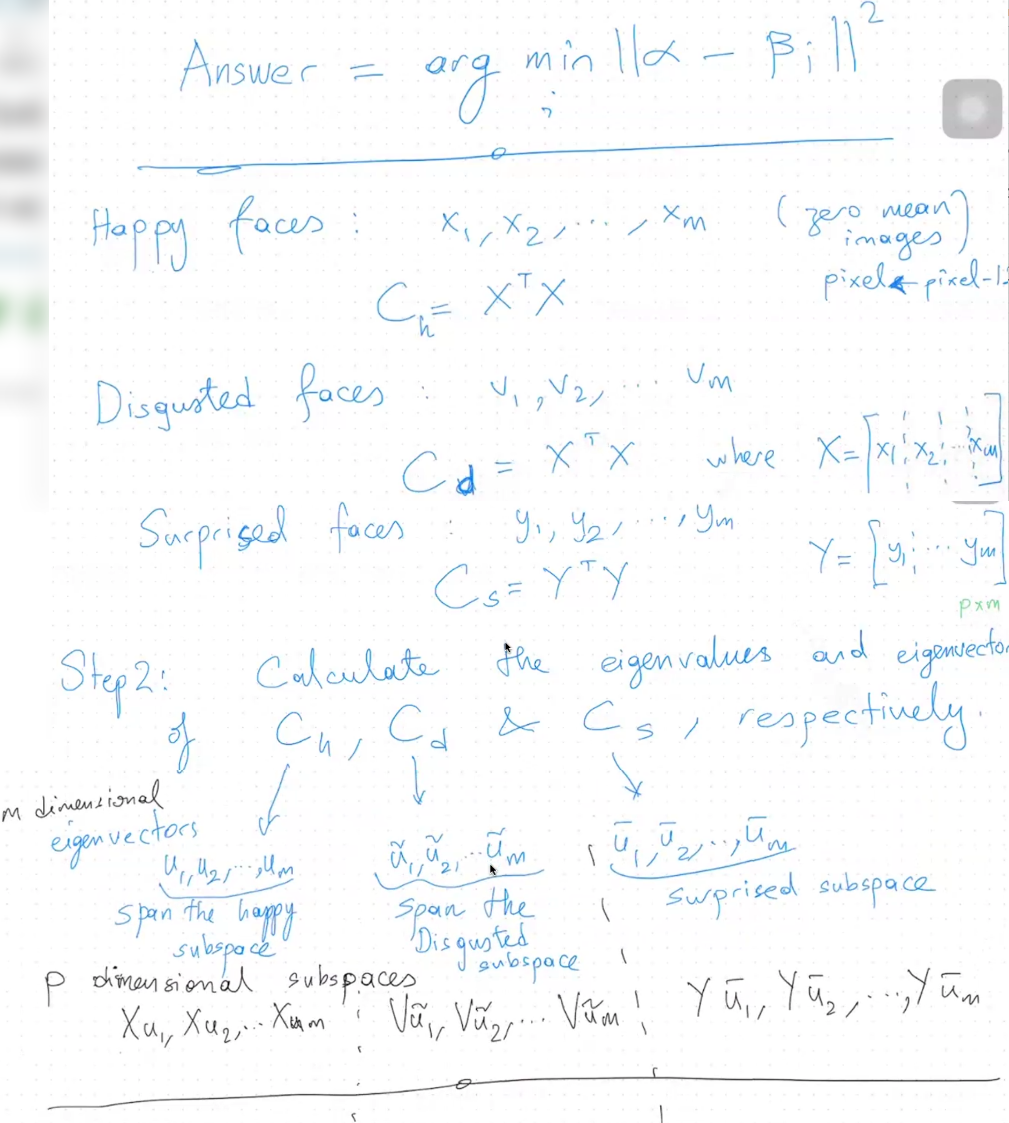 Answer = arg min ||α - βi||²
i
Happy faces : x1, x2, ..., xm (zero mean images)
pixel ← pixel-1
Ch = XᵀX
Disgusted faces : v1, v2, ... vm
Cd = XᵀX where X = [x1 ¦ x2 ¦ ... ¦ xm]
Surprised faces : y1, y2, ..., ym
Y = [y1 ¦ ... ym]
Cs = YᵀY
pxm
Step 2: Calculate the eigenvalues and eigenvecto
of Ch, Cd & Cs, respectively.
m dimensional
eigenvectors
u1, u2, ..., um ũ1, ũ2, ... ũm ū1, ū2, ..., ūm
span the happy subspace
span the Disgusted subspace
surprised subspace
p dimensional subspaces
Xu1, Xu2, ... Xum ¦ Vũ1, Vũ2, ... Vũm ¦ Yū1, Yū2, ..., Yūm